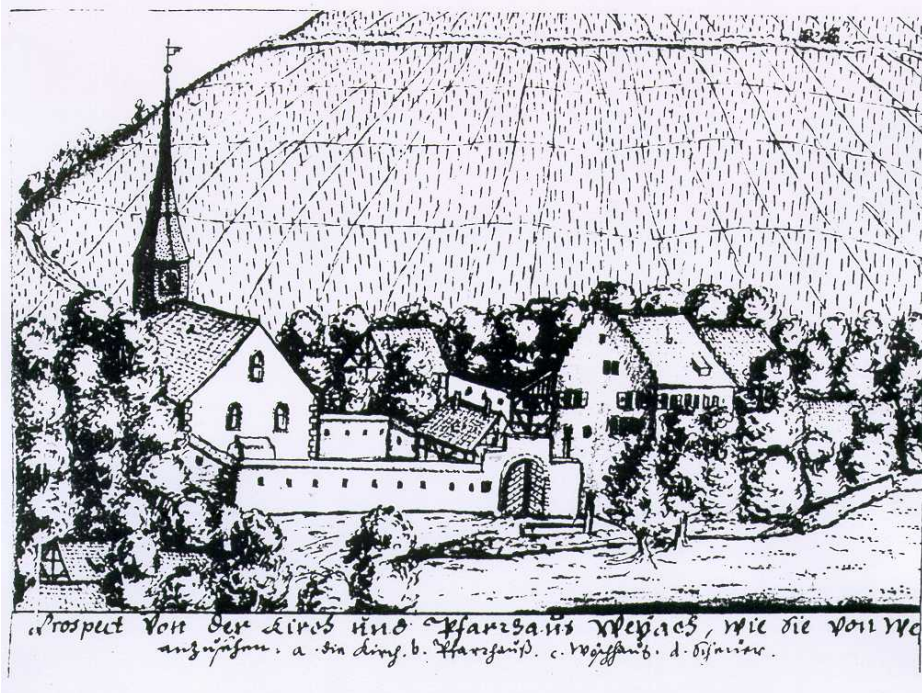 Prospect Von der Kirch und Pfarrhaus Weyach, wie sie von We
anzusehen. a. die Kirch. b. Pfarrhauß. c. Wöschhaus. d. Scheuer.